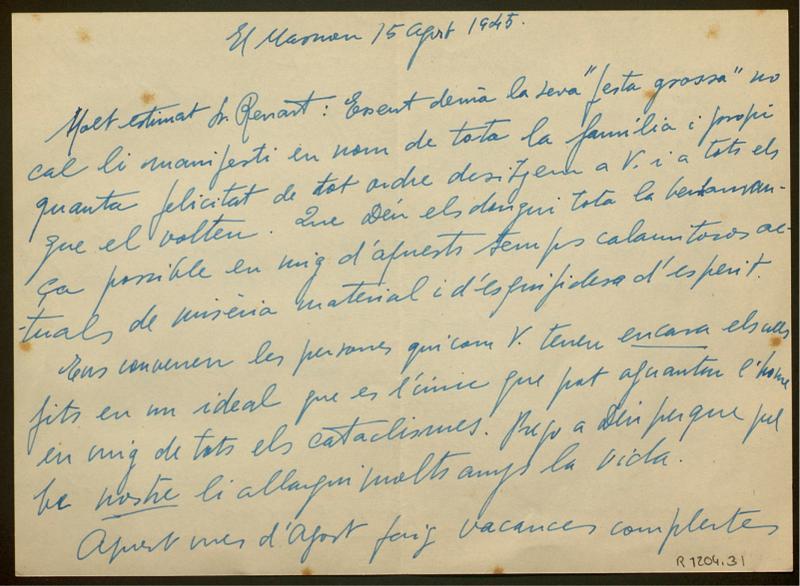 El Masnou 15 Agost 1945.
Molt estimat Sr. Renart: Essent demà la seva "festa grossa" no
cal li manifesti en nom de tota la família i propi
quanta felicitat de tot ordre desitjem a V. i a tots els
que el volten. Que Déu els dongui tota la benauran-
ça possible en mig d'aquests temps calamitosos ac-
tuals de misèria material i d'esquifidesa d'esperit.
Ens convenen les persones qui com V. tenen encara els ulls
fits en un ideal que es l'únic que pot aguantar l'home
en mig de tots els cataclismes. Prego a Déu perque pel
be nostre li allargui molts anys la vida.
Aquest mes d'Agost faig vacances complertes
R 1204.31